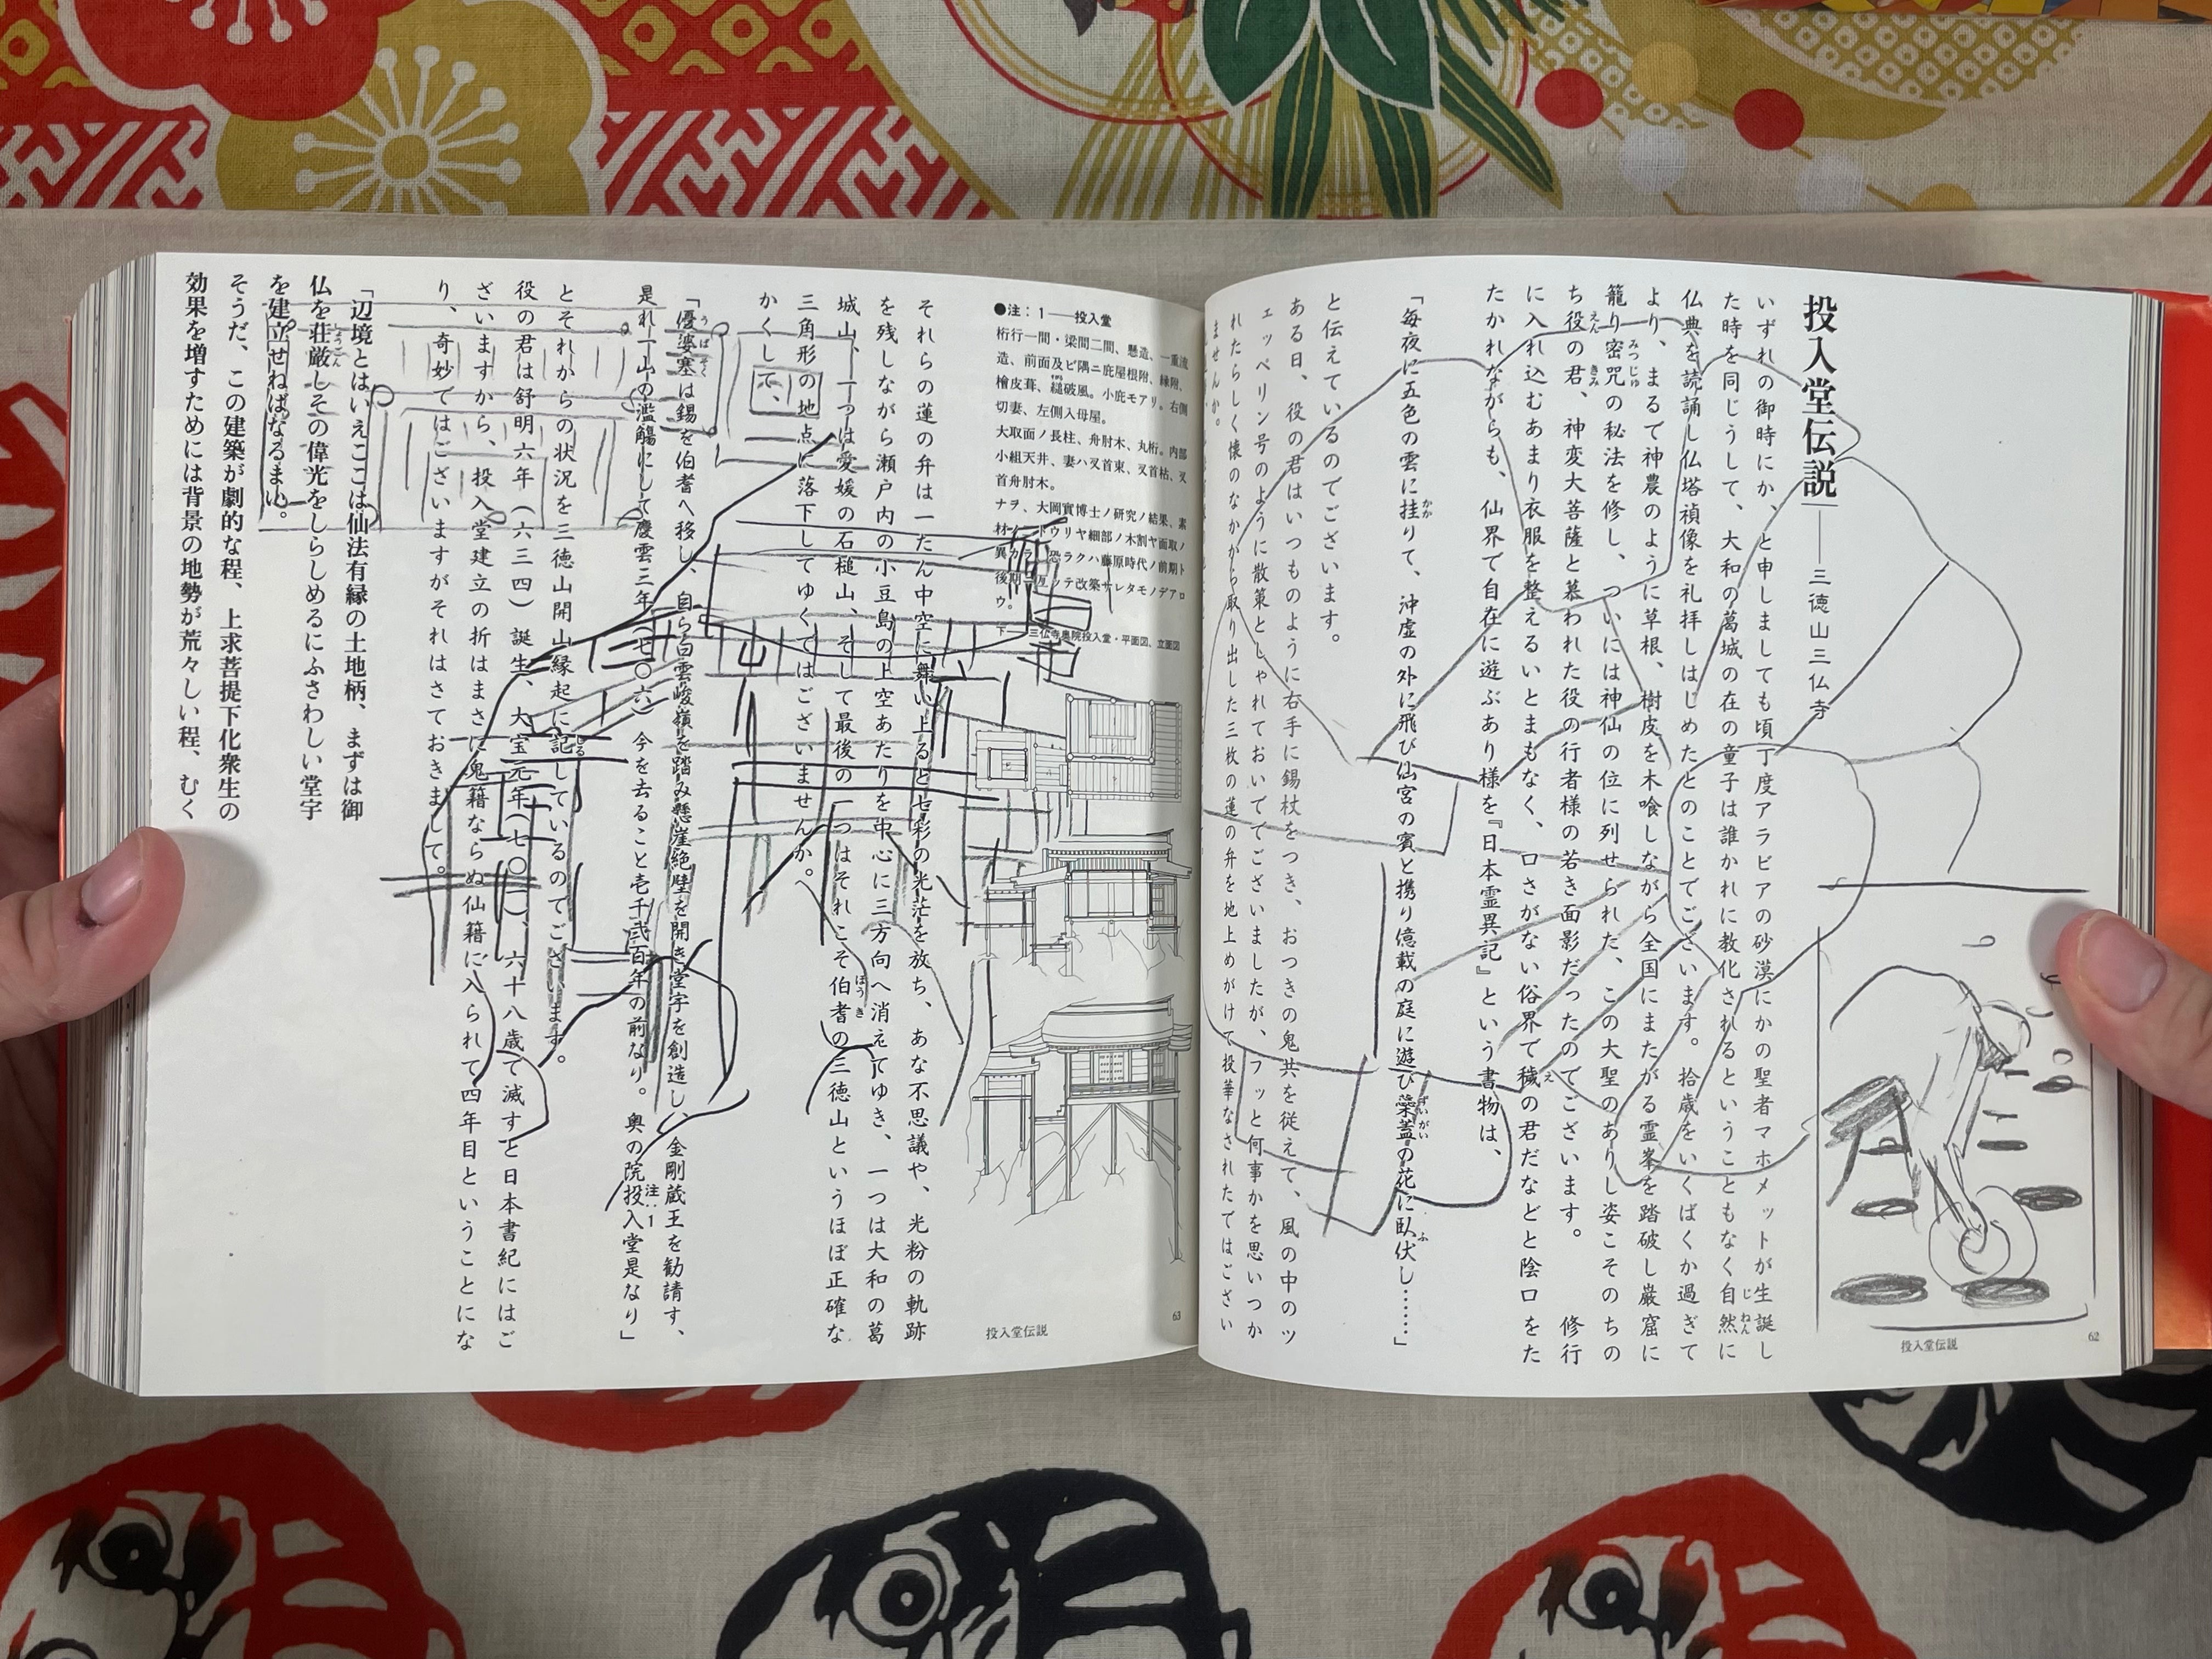 投入堂伝説――三徳山三仏寺
いずれの御時にか、と申しましても頃丁度アラビアの砂漠にかの聖者マホメットが生誕し
た時を同じうして、大和の葛城の在の童子は誰かれに教化されるということもなく自然に
じねん
仏典を読誦し仏塔禎像を礼拝しはじめたとのことでございます。拾歳をいくばくか過ぎて
より、まるで神農のように草根、樹皮を木喰しながら全国にまたがる霊峯を踏破し巌窟に
籠り密咒の秘法を修し、ついには神仙の位に列せられた、この大聖のありし姿こそのちの
みつじゅ
ち役の君、神変大菩薩と慕われた役の行者様の若き面影だったのでございます。　修行
えん きみ
に入れ込むあまり衣服を整えるいとまもなく、口さがない俗界で穢の君だなどと陰口をた
え
たかれながらも、仙界で自在に遊ぶあり様を『日本霊異記』という書物は、
「毎夜に五色の雲に挂りて、沖虚の外に飛び仙宮の賓と携り億載の庭に遊び蘂蓋の花に臥伏し……」
かか ずいがい ふ
と伝えているのでございます。
ある日、役の君はいつものように右手に錫杖をつき、おつきの鬼共を従えて、風の中のツ
ェッペリン号のように散策としゃれておいででございましたが、フッと何事かを思いつか
れたらしく懐のなかから取り出した三枚の蓮の弁を地上めがけて投華なされたではござい
ませんか。
投入堂伝説
62
●注：1――投入堂
桁行一間・梁間二間、懸造、一重流
造、前面及ビ隅ニ庇屋根附、縁附、
檜皮葺、縋破風。小庇モアリ。右側
切妻、左側入母屋。
大取面ノ長柱、舟肘木、丸桁。内部
小組天井、妻ハ叉首束、叉首枯、叉
首舟肘木。
ナヲ、大岡實博士ノ研究ノ結果、素
ドウリヤ細部ノ木割ヤ面取ノ
恐ラクハ藤原時代ノ前期ト
後期ニ亙ッテ改築サレタモノデアロ
ウ。
三仏寺奥院投入堂・平面図、立面図
それらの蓮の弁は一たん中空に舞い上ると七彩の光茫を放ち、あな不思議や、光粉の軌跡
を残しながら瀬戸内の小豆島の上空あたりを中心に三方向へ消えてゆき、一つは大和の葛
城山、一つは愛媛の石槌山、そして最後の一つはそれこそ伯耆の三徳山というほぼ正確な
ほうき
三角形の地点に落下してゆくではございませんか。
かくして、
「優婆塞は錫を伯耆へ移し、自ら白雲峻嶺を踏み懸崖絶壁を開き堂宇を創造し、金剛蔵王を勧請す、
うばそく
是れ一山の濫觴にして慶雲三年（七〇六）今を去ること壱千弐百年の前なり。奥の院投入堂是なり」
注：1
とそれからの状況を三徳山開山縁起に記しているのでございます。
しる
役の君は舒明六年（六三四）誕生、大宝元年（七〇一）、六十八歳で滅すと日本書紀にはご
ざいますから、投入堂建立の折はまさに鬼籍ならぬ仙籍に入られて四年目ということにな
り、奇妙ではございますがそれはさておきまして。
「辺境とはいえここは仙法有縁の土地柄、まずは御
仏を荘厳しその偉光をしらしめるにふさわしい堂宇
しょうごん
を建立せねばなるまい。
そうだ、この建築が劇的な程、上求菩提下化衆生の
効果を増すためには背景の地勢が荒々しい程、むく
投入堂伝説
63